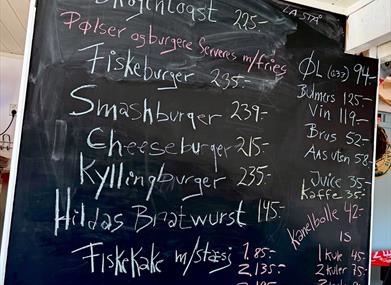 225-
LA STÅ
Pølser og burgere Serveres m/fries
Fiskeburger 235-
Smashburger 239-
Cheeseburger 215-
Kyllingburger 235-
Hildas Bratwurst 145-
Fiskekake m/stæsj 1. 85-
2. 135-
ØL (033) 94-
Bulmers 125-
Vin 119-
Brus 52-
Ass uten 58-
Juice 35-
Kaffe 35-
Kanelbolle 42-
IS
1 kule 45
2 kuler 75-